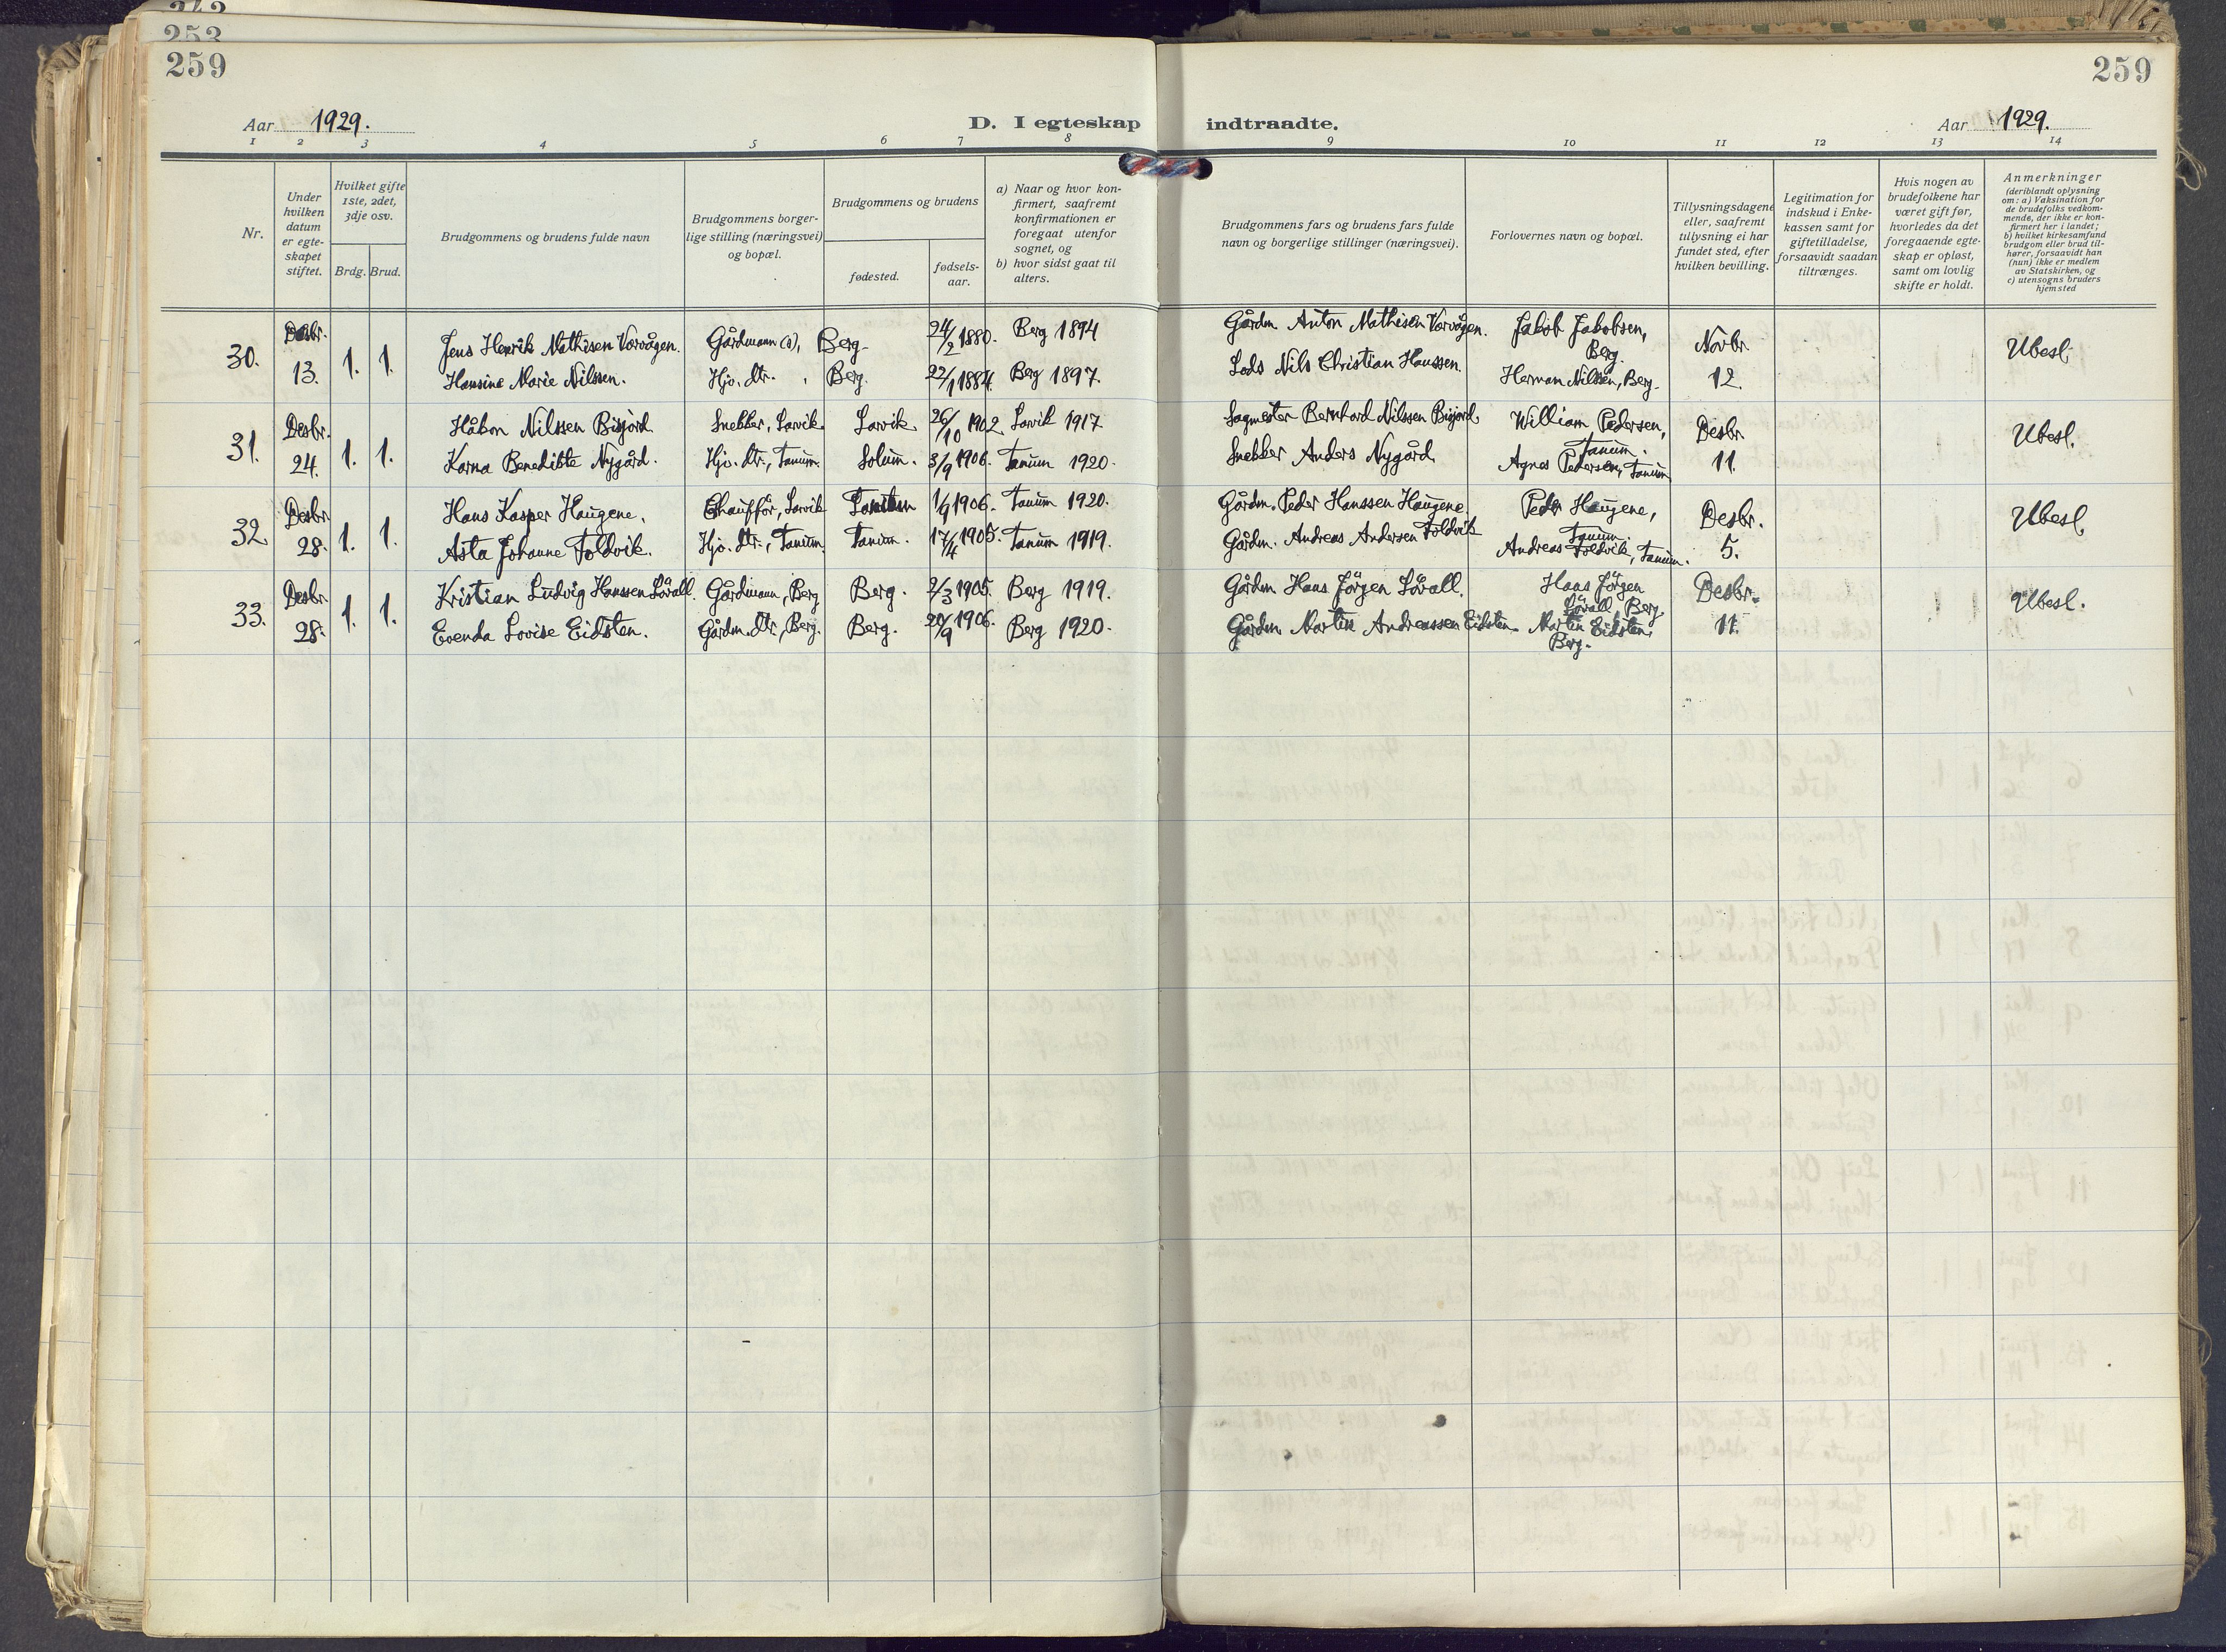 243
253
259
259
Aar 1929.
D. I egteskap indtraadte.
Aar 1929.
1 2 3 4 5 6 7 8 9 10 11 12 13 14
Nr.
Under
hvilken
datum
er egte-
skapet
stiftet.
Hvilket gifte
1ste, 2det,
3dje osv.
Brdg. Brud.
Brudgommens og brudens fulde navn
Brudgommens borger-
lige stilling (næringsvei)
og bopæl.
Brudgommens og brudens
fødested.
fødsels-
aar.
a) Naar og hvor kon-
firmert, saafremt
konfirmationen er
foregaat utenfor
sognet, og
b) hvor sidst gaat til
alters.
Brudgommens fars og brudens fars fulde
navn og borgerlige stillinger (næringsvei).
Forlovernes navn og bopæl.
Tillysningsdagene
eller, saafremt
tillysning ei har
fundet sted, efter
hvilken bevilling.
Legitimation for
indskud i Enke-
kassen samt for
giftetilladelse,
forsaavidt saadan
tiltrænges.
Hvis nogen av
brudefolkene har
været gift før,
hvorledes da det
foregaaende egte-
skap er opløst,
samt om lovlig
skifte er holdt.
Anmerkninger
(deriblandt oplysning
om: a) Vaksination for
de brudefolks vedkom-
mende, der ikke er kon-
firmert her i landet;
b) hvilket kirkesamfund
brudgom eller brud til-
hører, forsaavidt han
(hun) ikke er medlem
av Statskirken, og
c) utensogns bruders
hjemsted
30. Desbr. 13. 1. 1.
Jens Henrik Mathisen Vorvågen. Gårdmann (s), Berg. 24/2 1880. Berg 1894 Gårdm. Anton Mathisen Vorvågen. Jakob Jakobsen, Berg. Novbr. Ubesl.
Hansine Marie Nilssen. Hjv. dtr. , Berg. 22/1 1884. Berg 1897. Lods Nils Christian Hanssen. Herman Nilssen, Berg. 12.
31. Desbr. 24. 1. 1.
Håkon Nilssen Bisjord Snekker, Larvik. Larvik. 26/10 1902 Larvik 1917 Sagmester Bernhard Nilssen Bisjord William Pedersen, Tanum. Desbr. Ubesl.
Karna Benedikte Nygård. Hjv. dtr., Tanum. Solum. 3/9 1906. Tanum 1920. Snekker Anders Nygård. Agnes Pedersen, Tanum 11.
32 Desbr. 28. 1. 1.
Hans Kasper Haugene. Chauffør, Larvik Tanum 1/9 1906. Tanum 1920. Gårdm. Peder Hanssen Haugene. Peder Haugene, Tanum. Desbr. Ubesl.
Asta Johanne Foldvik. Hjv. dtr., Tanum. Tanum. 17/4 1905. Tanum 1919. Gårdm. Andreas Andersen Foldvik Andreas Foldvik, Tanum. 5.
33. Desbr. 28. 1. 1.
Kristian Ludvig Hanssen Løvall. Gårdmann, Berg Berg. 2/3 1905. Berg 1919. Gårdm Hans Jörgen Løvall. Hans Jörgen Løvall, Berg. Desbr. Ubesl.
Evenda Lovise Eidsten. Gårdm. dtr, Berg. Berg. 20/9 1906. Berg 1920. Gårdm. Martin Andreassen Eidsten. Martin Eidsten, Berg. 11.